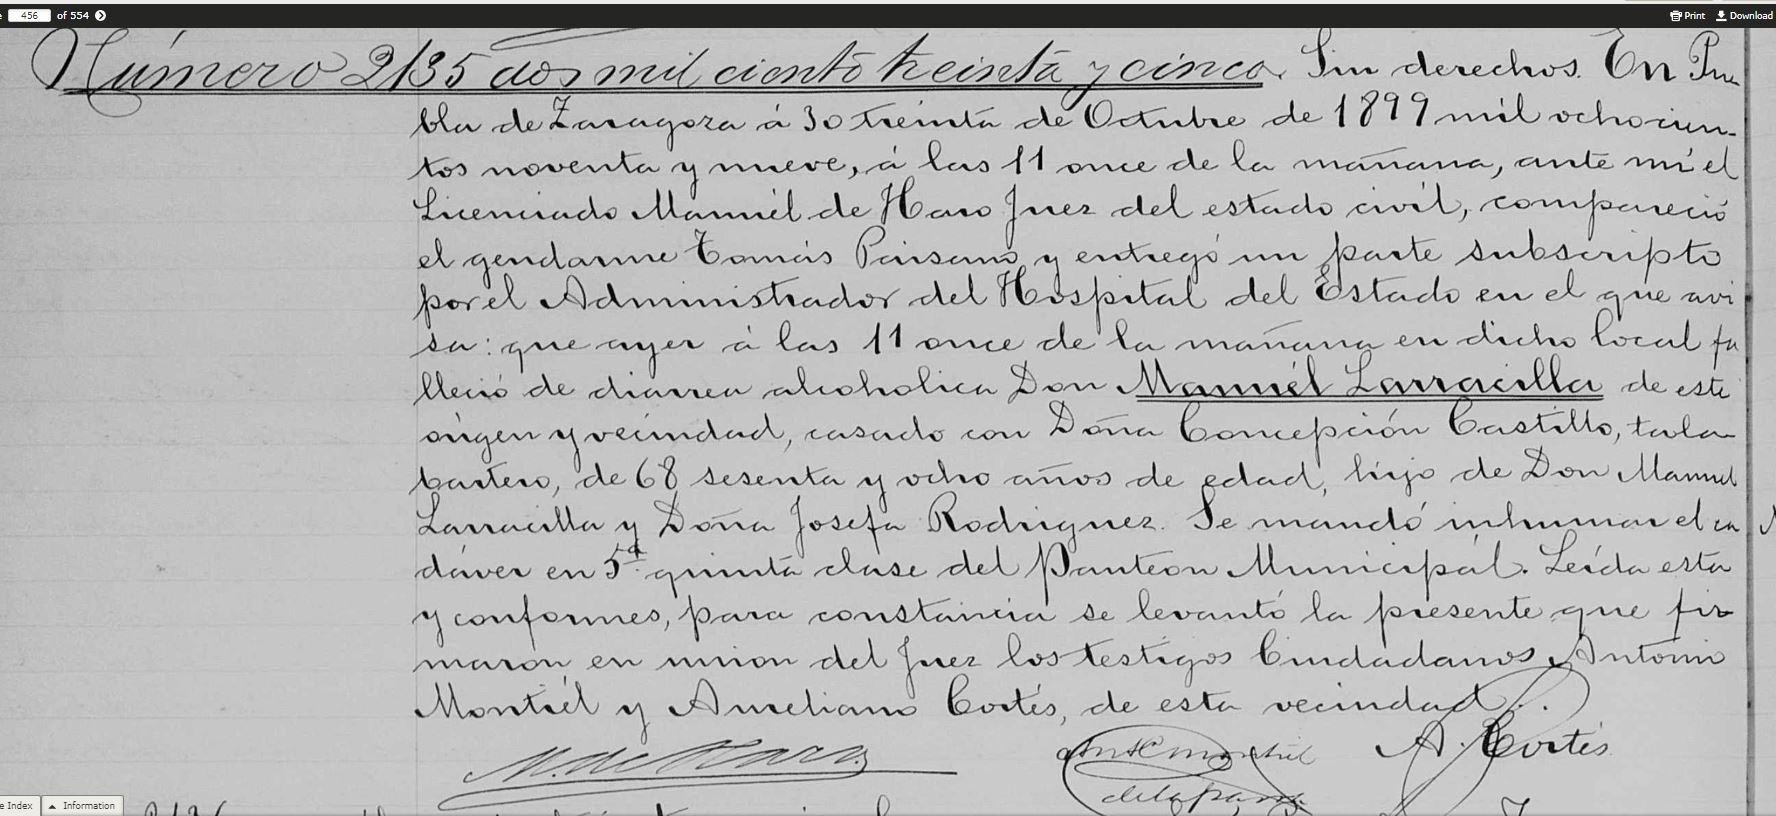 456 of 554
Print Download
Número 2135 dos mil ciento treinta y cinco. Sin derechos. En Pue
bla de Zaragoza á 30 treinta de Octubre de 1899 mil ochocien-
tos noventa y nueve, á las 11 once de la mañana, ante mí el
Licenciado Manuél de Haro Juez del estado civíl, compareció
el gendarme Tomás Paisano y entregó un parte subscripto
por el Administrador del Hospital del Estado en el que avi
sa: que ayer á las 11 once de la mañana en dicho local fa
lleció de diarrea alcoholica Don Manuél Larracilla de este
orígen y vecindad, casado con Doña Concepción Castillo, tala-
bartero, de 68 sesenta y ocho años de edad, hijo de Don Manuel
Larracilla y Doña Josefa Rodriguez. Se mandó inhumar el ca
dáver en 5ª quinta clase del Panteon Municipál. Leída esta
y conformes, para constancia se levantó la presente que fir
maron en union del Juez los testigos Ciudadanos Antonio
Montiél y Aureliano Cortés, de esta vecindad.
M. de Haro
Antº Montiel A. Cortés
de la parra
Index Information